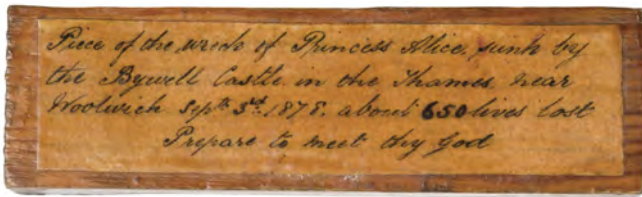 Piece of the wreck of Princess Alice, sunk by
the Bywell Castle in the Thames near
Woolwich Septr 3rd 1878. about 650 lives lost
Prepare to meet thy God